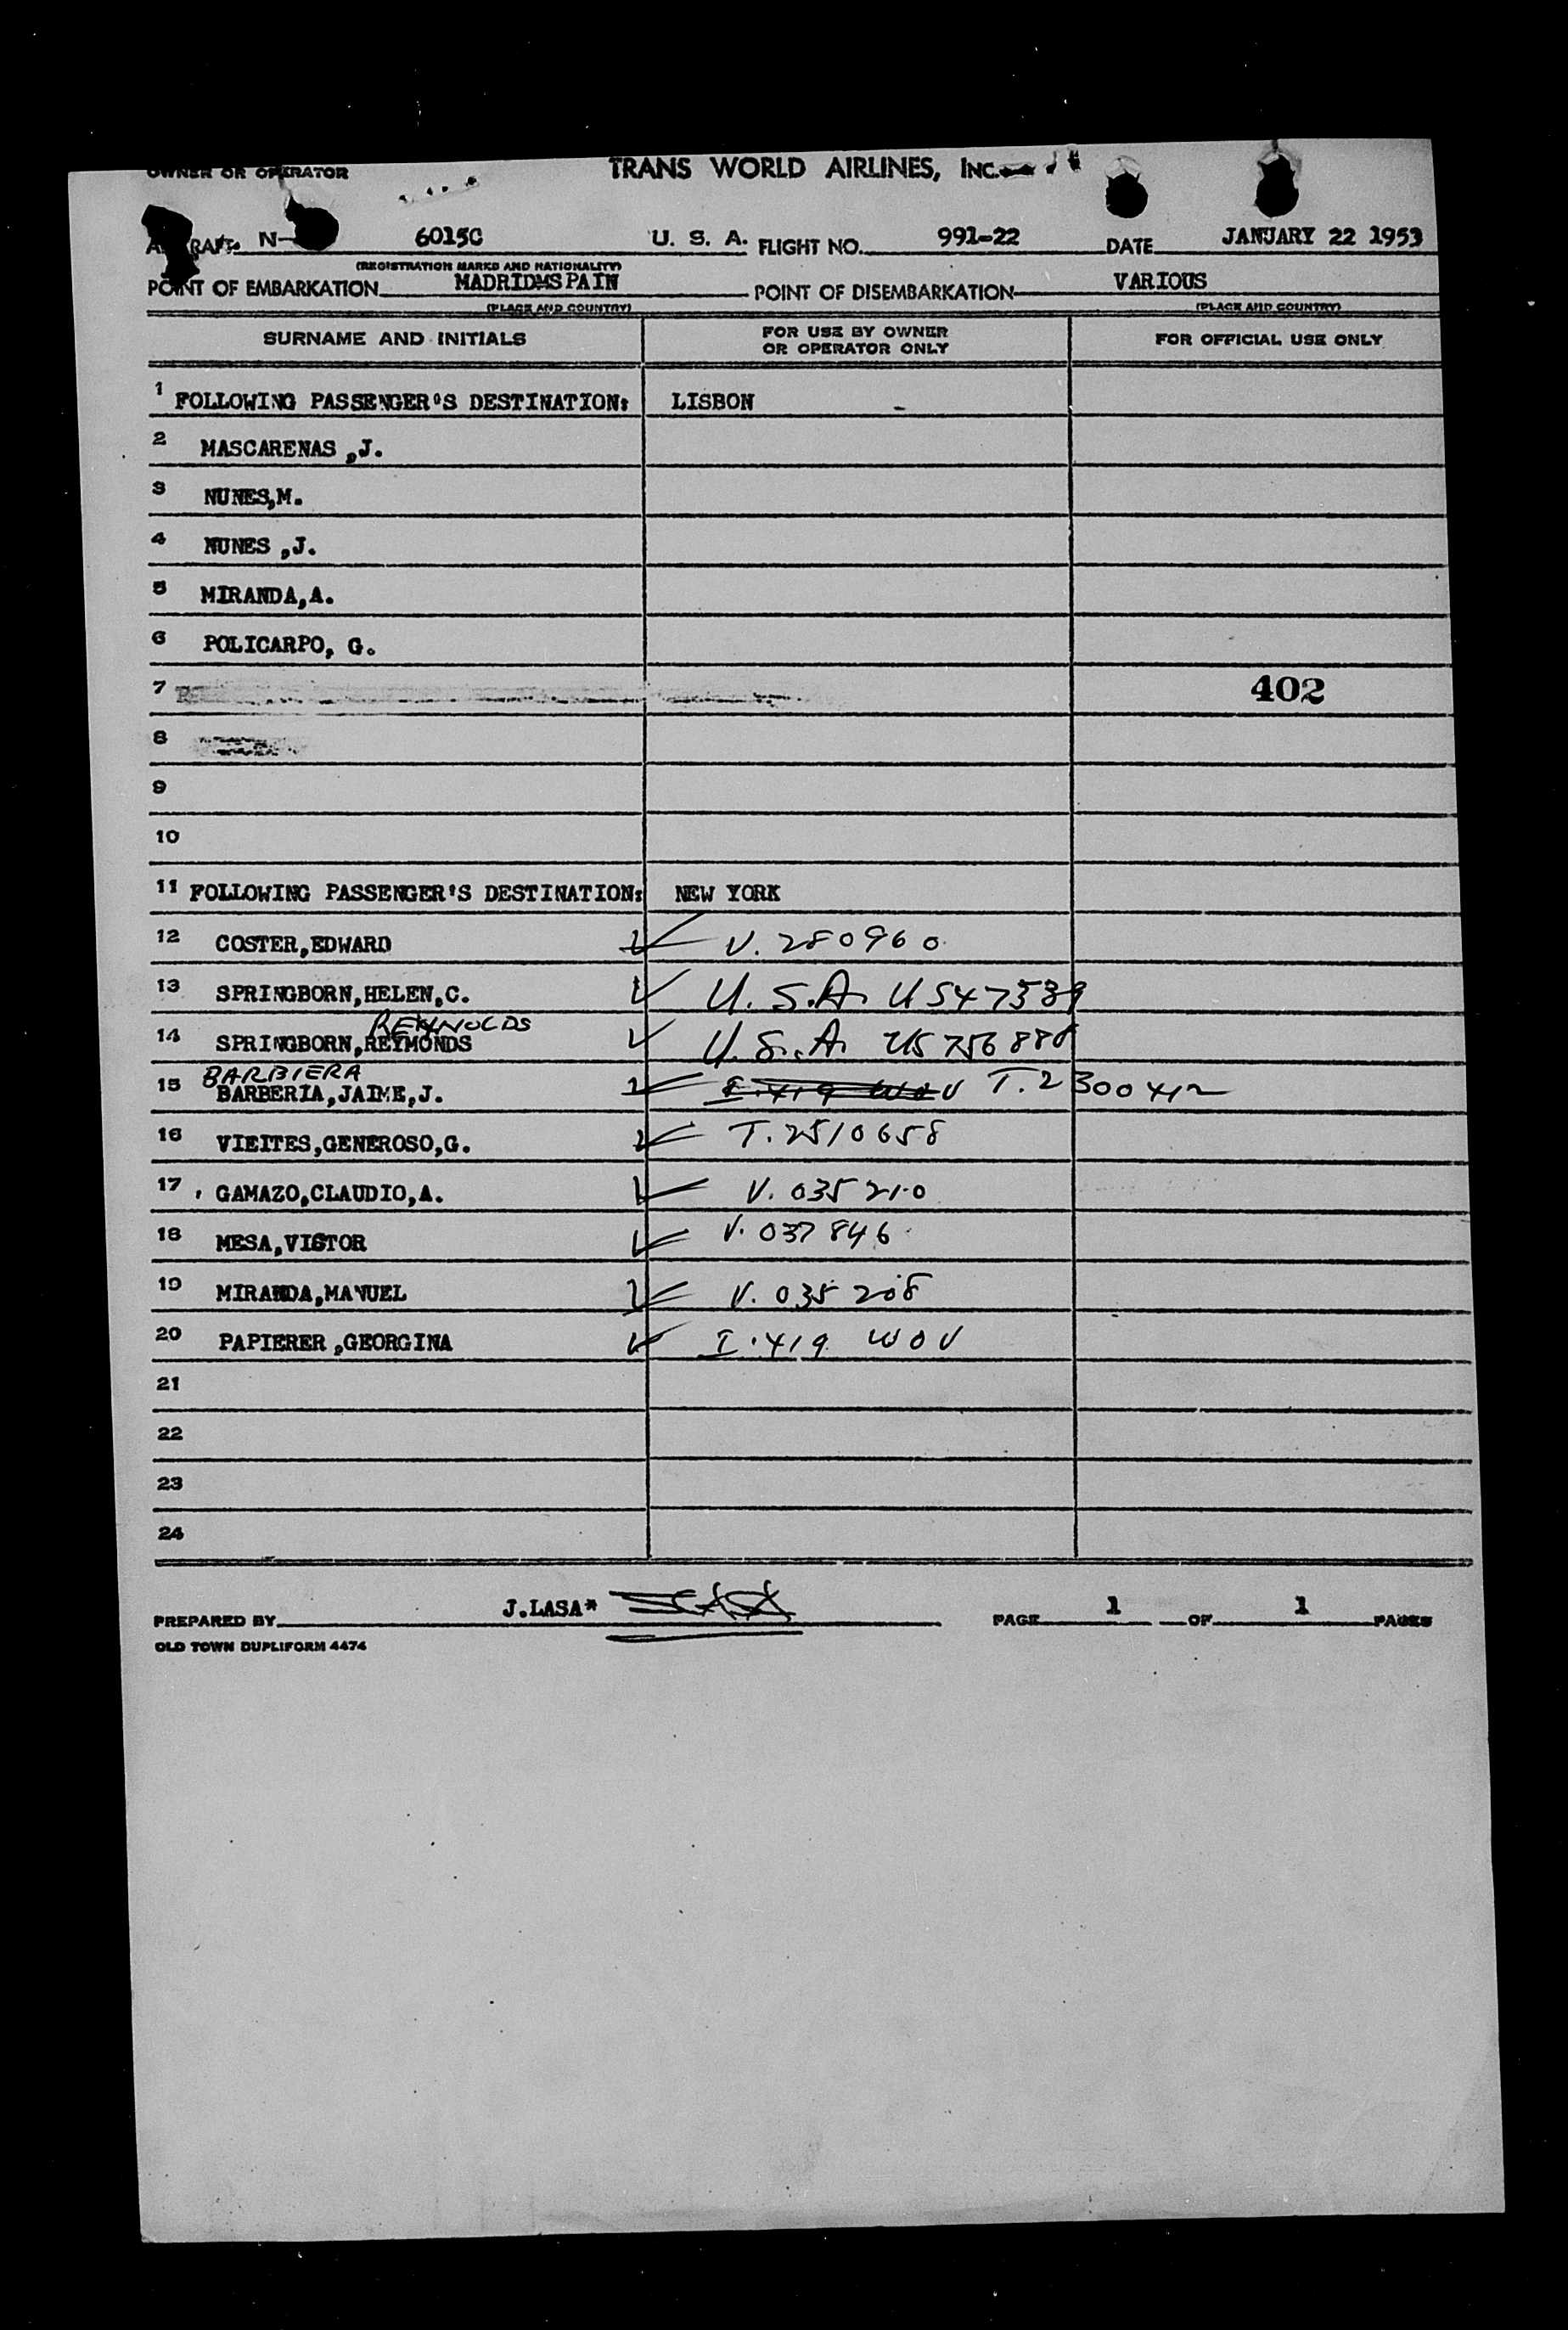 OWNER OR OPERATOR TRANS WORLD AIRLINES, INC.
N- 6015C U. S. A. FLIGHT NO. 991-22 DATE JANUARY 22 1953
(REGISTRATION MARKS AND NATIONALITY)
POINT OF EMBARKATION MADRIDMSPAIN POINT OF DISEMBARKATION VARIOUS
(PLACE AND COUNTRY) (PLACE AND COUNTRY)
SURNAME AND INITIALS FOR USE BY OWNER OR OPERATOR ONLY FOR OFFICIAL USE ONLY
1 FOLLOWING PASSENGER'S DESTINATION: LISBON
2 MASCARENAS ,J.
3 NUNES,M.
4 NUNES ,J.
5 MIRANDA,A.
6 POLICARPO, G.
7 402
8
9
10
11 FOLLOWING PASSENGER'S DESTINATION: NEW YORK
12 COSTER,EDWARD V. 280960
13 SPRINGBORN,HELEN,C. U.S.A. US47539
REYNOLDS
14 SPRINGBORN,REYMONDS U.S.A. US
BARBIERA
15 BARBERIA,JAIME,J. I.419 WOV T.2300412
16 VIEITES,GENEROSO,G. T.2510658
17 GAMAZO,CLAUDIO,A. V. 035210
18 MESA,VICTOR V. 037846
19 MIRANDA,MANUEL V. 035208
20 PAPIERER ,GEORGINA I.419 WOV
21
22
23
24
PREPARED BY J.LASA* PAGE 1 OF 1 PAGES
OLD TOWN DUPLIFORM 4474